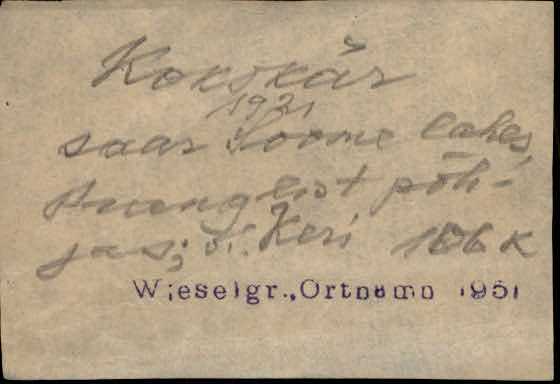 Kokskär
1921
saar Soome lahes,
Pranglist põh-
jas; Keri 186 K
Wieselgr., Ortnamn 1951